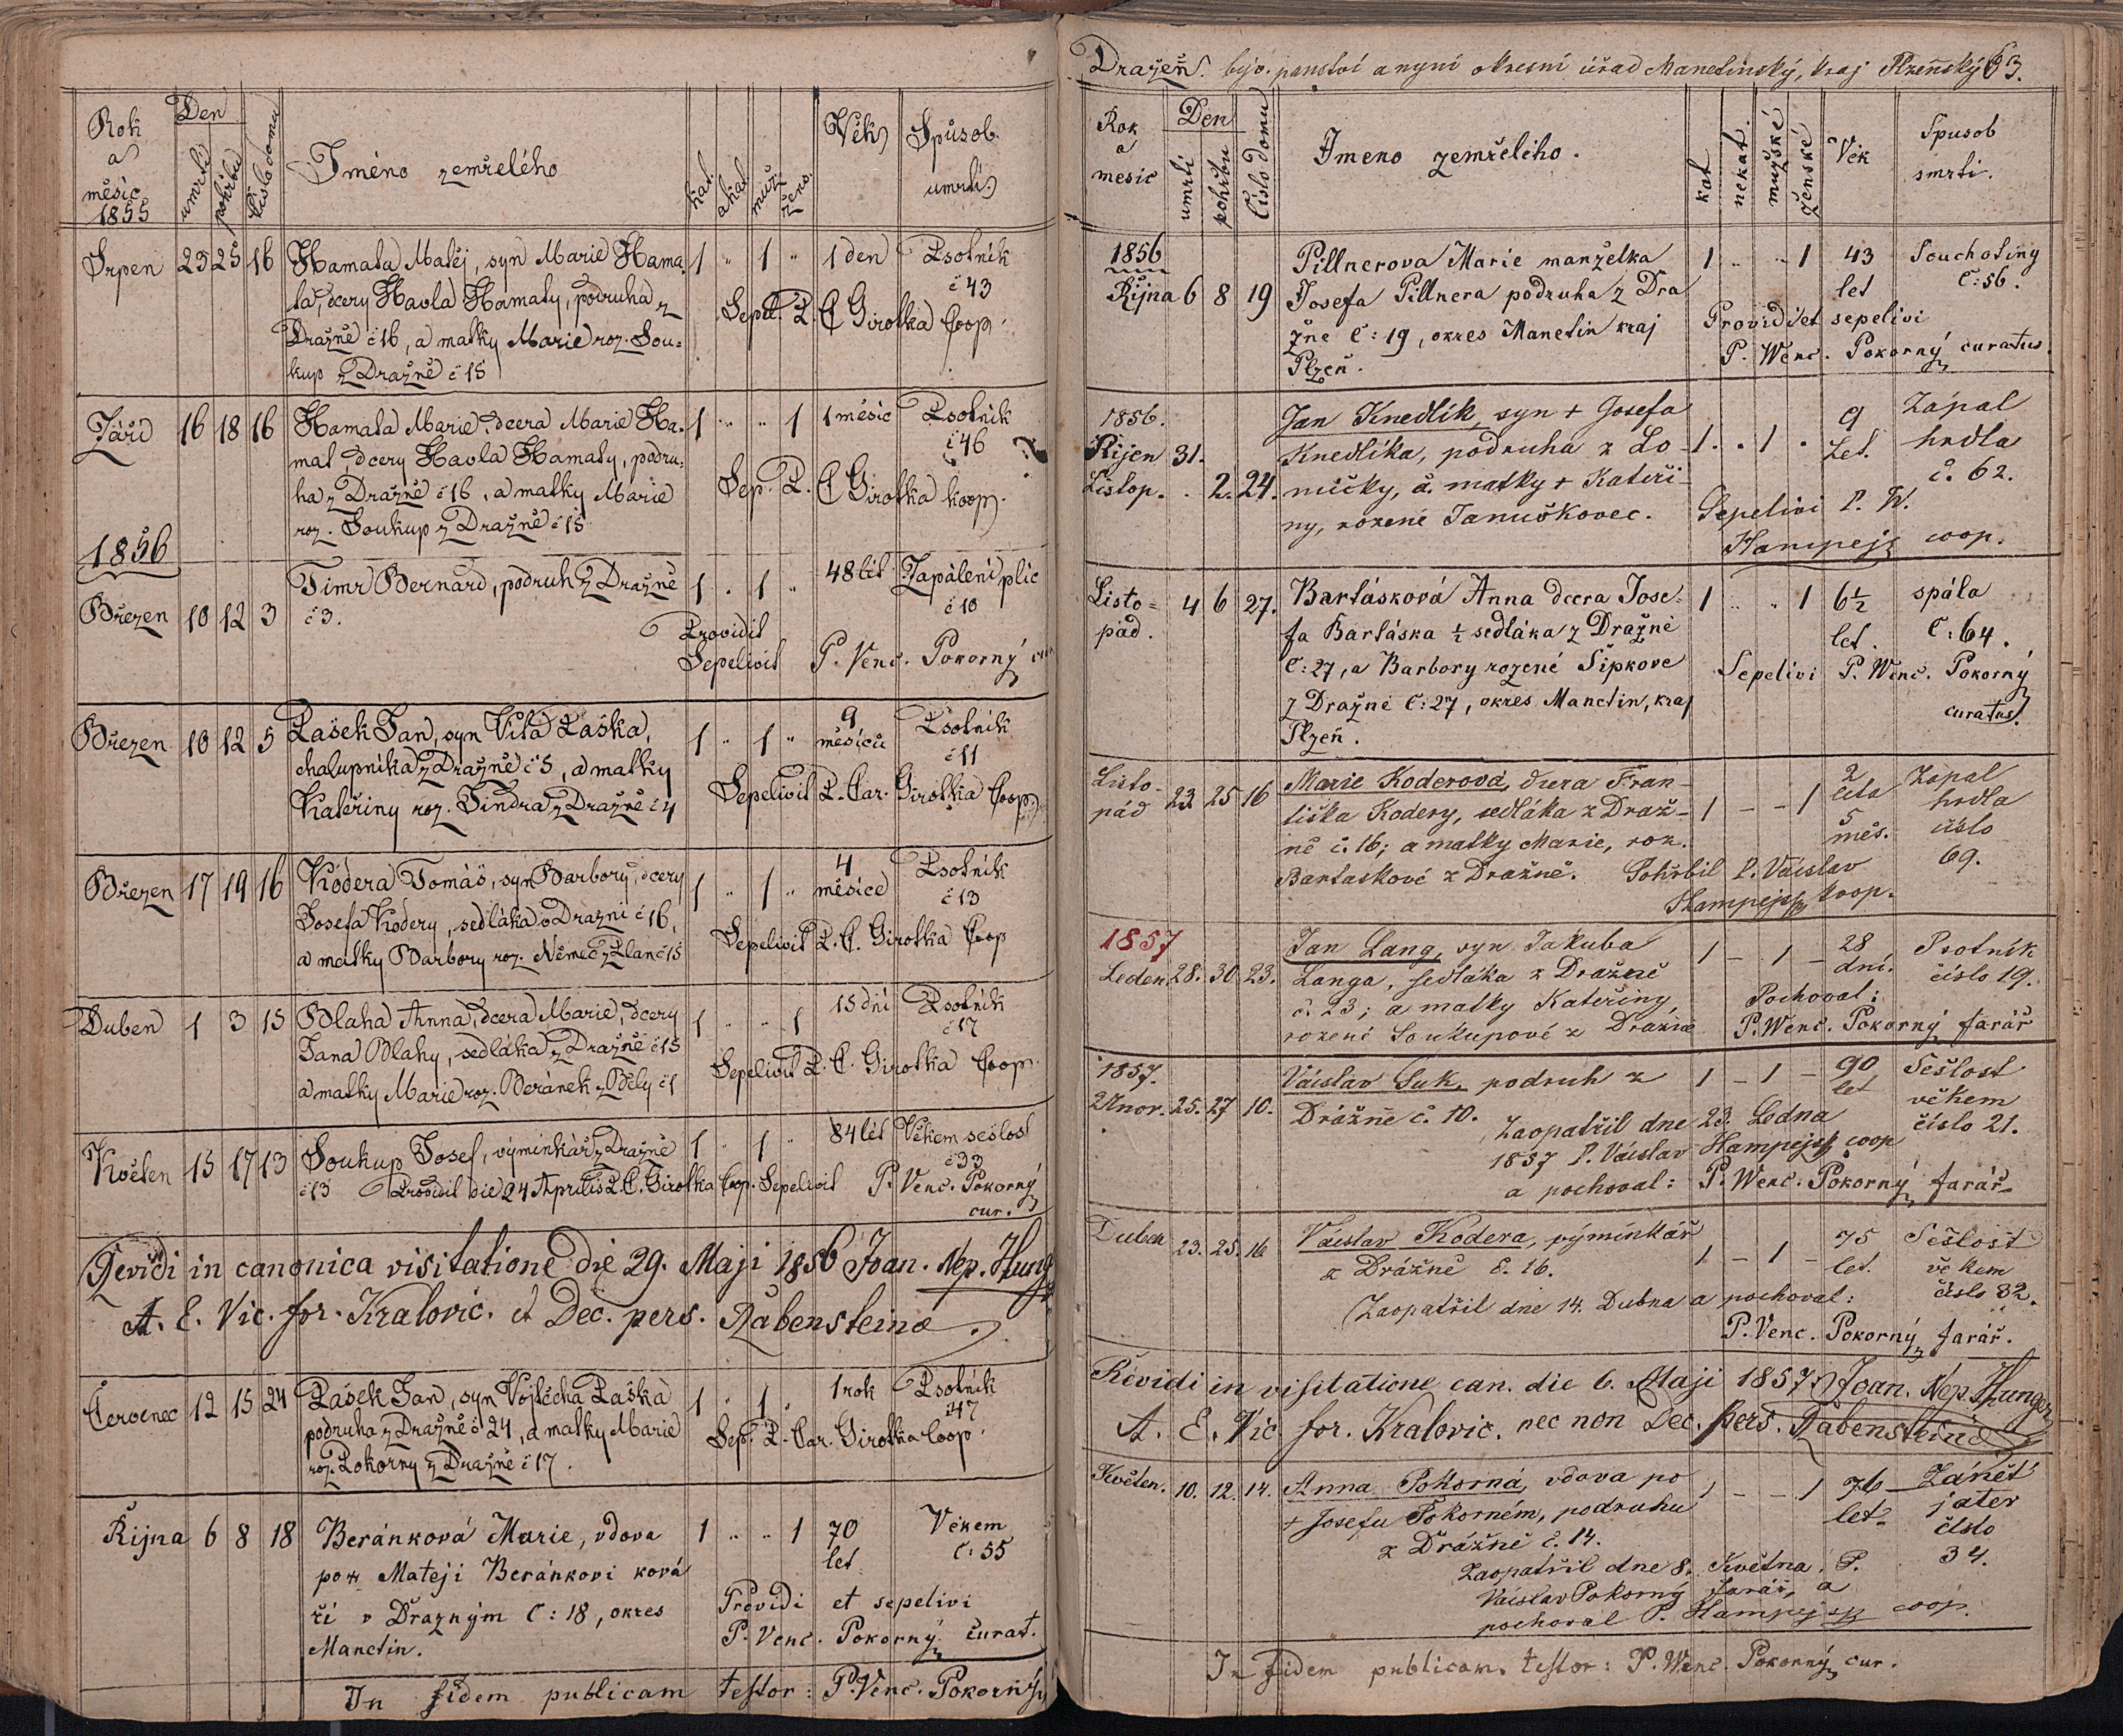 Rok
a
měsíc
1855
Den
umrtí
pohřbu
Číslo domu
Jméno zemřelého
kat.
akat.
muž.
žens.
Věk
Spůsob
umrtí
Srpen 23 25 16 Hamata Matěj, syn Marie Hama- 1 " 1 " 1 den Psotník
ta, dcery Pavla Hamaty, podruha z č 43
Dražně č 16, a matky Marie roz. Sou= Sepel. P. C Girotka Coop.
kup z Dražně č 15
Září 16 18 16 Hamata Marie, dcera Marie Ha- 1 " " 1 1 měsíc Psotník
mat, dcery Pavla Hamaty, podru= č 46
ha z Dražně č 16, a matky Marie Sep. P. C Girotka koop.
roz. Soukup z Dražně č 15
1856
Timr Bernard, podruh z Dražně 1 . 1 " 48 lét Zapálení plic
Březen 10 12 3 č 3. č 10
Providit
Sepelivit P. Venc. Pokorný
Březen 10 12 5 Pašek Jan, syn Víta Paška, 1 " 1 " 9 měsíců Psotník
chalupníka z Dražně č 5, a matky č 11
Kateřiny roz. Šindra z Dražně č 4 Sepelivit P. Car. Girotka Coop.
Březen 17 19 16 Kodera Tomáš, syn Barbory, dcery 1 " 1 " 4 měsíce Psotník
Josefa Kodery, sedláka v Drazni č 16, č 13
a matky Barbory roz. Němec z Plan č 15 Sepelivit P. C. Girotka Coop
Duben 1 3 15 Blaha Anna, dcera Marie, dcery 1 " " 1 15 dní Psotník
Jana Blahy, sedláka z Dražně č 15 č 17
a matky Marie roz. Beránek z Běly č 1 Sepelivit P. C. Girotka Coop.
Květen 15 17 13 Soukup Josef, výminkář z Dražně 1 " 1 " 84 lét Věkem sešlost
č 13 Providit die 24 Aprilis P. C. Girotka Coop. Sepelivit P. Venc. Pokorný č 33
cur.
Revidi in canonica visitatione die 29. Maji 1856 Joan. Nep. Hung
A. E. Vic. for. Kralovic. et Dec. pers. Rabensteina.
Červenec 12 15 24 Pašek Jan, syn Vojtěcha Paška 1 . 1 . 1 rok Psotník
podruha z Dražně č 24, a matky Marie č 47
roz. Pokorny z Dražně č 17. Sep. P. Car. Girotka Coop.
Řijna 6 8 18 Beránková Marie, vdova 1 " " 1 70 Věkem
po Mateji Beránkovi ková let Č: 55
ři v Dražným Č: 18, okres Providi et sepelivi
Manetin. P. Venc. Pokorný curat.
In fidem publicam testor: P. Venc. Pokorný
Dražeň. býv. panství a nyní okresní úřad Manetínský, kraj Plzeňský 63.
Rok
a
mesic
Den
umrti
pohřbu
Číslo domu
Jmeno zemřelého.
kat
nekat.
mužské
ženské
Věk
Spusob
smrti.
1856 Pillnerova Marie manželka 1 .. .. 1 43 Souchotiny
Řijna 6 8 19 Josefa Pillnera podruha z Dra let Č: 56.
žne Č: 19, okres Manetin kraj Providi et sepelivi
Plzeň. P. Wenc. Pokorný curatus.
1856. Jan Knedlík, syn + Josefa 9 Zápal
Říjen 31. Knedlíka, podruha z Lo- 1 . 1 . Let. hrdla
Listop. . 2. 24. míčky, a. matky + Kateři- č. 62.
ny, rozené Janučkovec. Sepelivi P. W.
Hampejz coop.
Listo= 4 6 27. Bartásková Anna dcera Jose= 1 .. .. 1 6½ spála
pád. fa Bartáska ½ sedláka z Dražné let. Č: 64.
Č: 27, a Barbory rozené Šipkove Sepelivi P. Wenc. Pokorný
z Dražné Č: 27, okres Manetin, kraj curatus.
Plzeň.
Listo- 23 25 16 Marie Koderová, dcera Fran- 1 - - 1 2 léta Zápal
pád tiška Kodery, sedláka z Draž- 5 hrdla
ně č. 16; a matky Marie, roz. měs. číslo
Bartaskové z Dražně. Pohřbil P. Václav 69.
Hampejz, koop.
1857 Jan Lang, syn Jakuba 1 - 1 - 28 Psotník
Leden. 28. 30. 23. Langa, sedláka z Dražně dní. číslo 19.
č. 23; a matky Kateřiny, Pochoval:
rozené Soukupové z Dražně P. Wenc. Pokorný farář
1857. Václav Suk, podruh z 1 - 1 - 90 Sešlost
Únor. 25. 27 10. Drážně č. 10. let věkem
Zaopatřil dne 23. Ledna číslo 21.
1857 P. Václav Hampejz coop
a pochoval: P. Wenc. Pokorný farář.
Duben 23. 25. 16 Václav Kodera, výminkář 1 - 1 - 75 Sešlost
z Drážně č. 16. let. věkem
Zaopatřil dne 14. Dubna a pochoval: číslo 32.
P. Venc. Pokorný farář.
Revidi in visitatione can. die 6. Maji 1857. Joan. Nep. Hunger
A. E. Vic for. Kralovic. nec non Dec. pers. Rabensteina
Květen. 10. 12. 14. Anna Pokorná, vdova po 1 - - 1 76 Zánět
+ Josefu Pokorném, podruhu let. jater
z Drážně č. 14. číslo
Zaopatřil dne 8. Května P. 34.
Václav Pokorný farář, a
pochoval P. Hampejz coop.
In fidem publicam testor: P. Wenc. Pokorný cur.